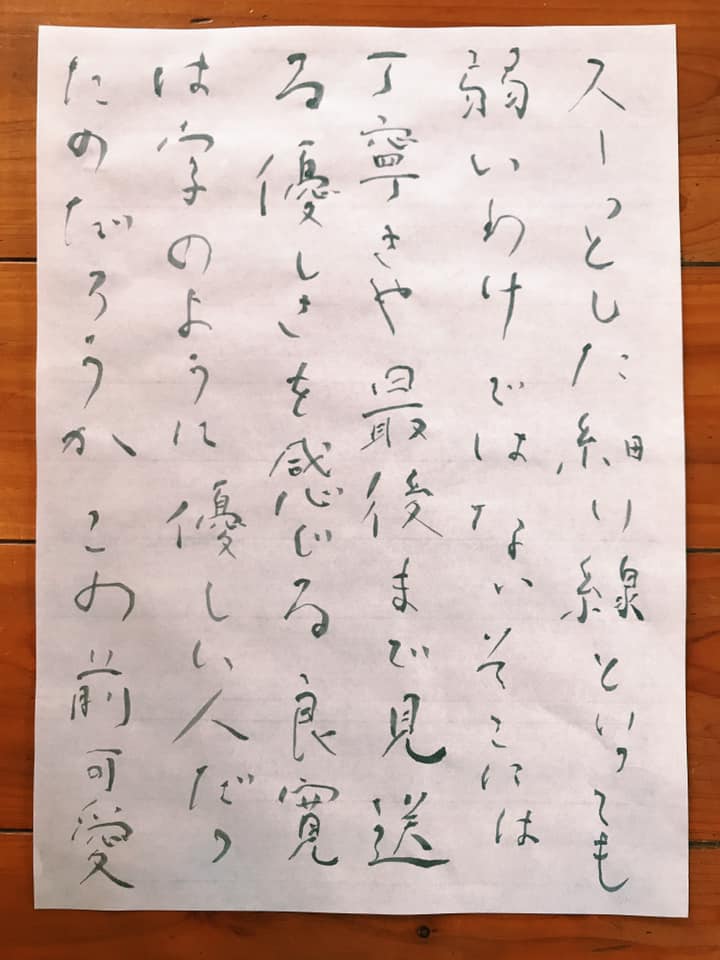 スーっとした細い線といっても
弱いわけではないそこには
丁寧さや最後まで見送
る優しさを感じる良寛
は字のように優しい人だっ
たのだろうかこの前可愛